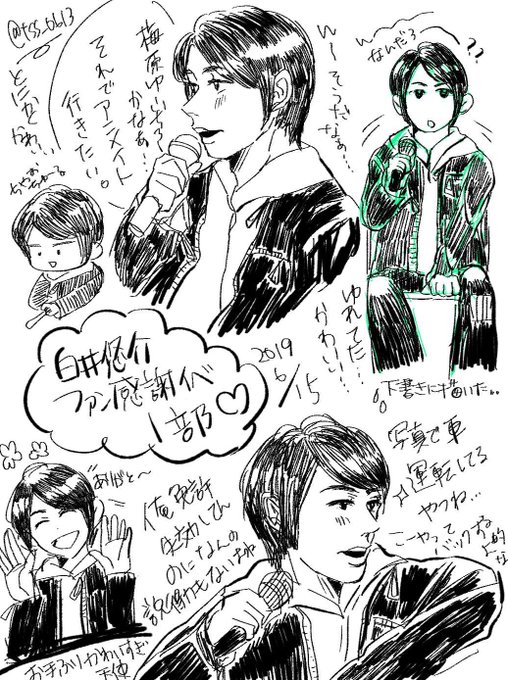 @tss_0613
なんだろ
??
w～そうだなぁ…
梅原ゆいぞう
かなあ?
それでアニメイト
行きたい。
とにかくかわ…
ゆれてた…
かわいい…
白井悠介
ファン感謝イベ
1部♡
2019
6/15
下書きに描いた。。
写真で車
運転してる
やつね…
こーやって
バックお
的な
ありがと～
俺免許
失効してん
のになんの
説得力もないな
お手ふりかわいすぎ
天使